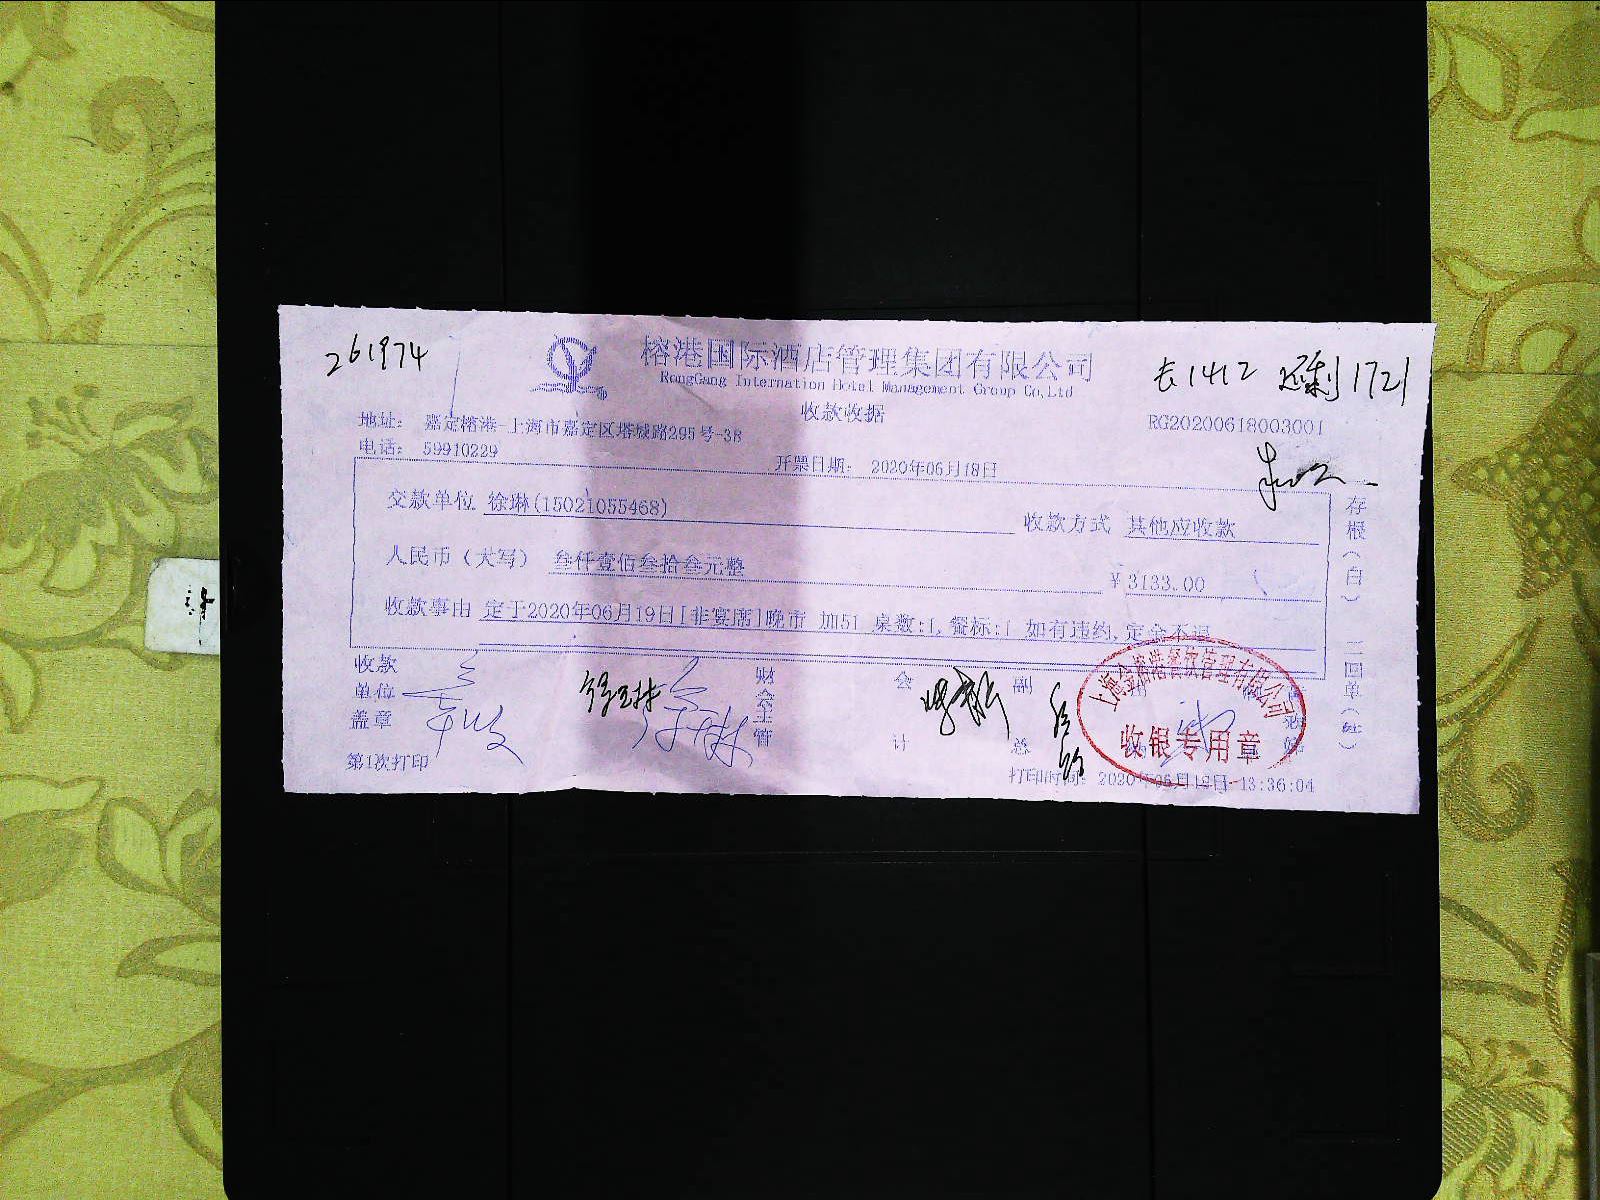 261974
榕港国际酒店管理集团有限公司
RongGang Internation Hotel Management Group Co,Ltd
还剩1721
收款收据
RG20200618003001
地址: 嘉定榕港-上海市嘉定区塔城路295号-38
电话: 59910229
开票日期: 2020年06月18日
交款单位 徐琳(15021055468)
收款方式 其他应收款
人民币(大写) 叁仟壹佰叁拾叁元整
¥3133.00
收款事由 定于2020年06月19日[非宴席]晚市 加51 桌数:1,餐标:1 如有违约,定金不退
存根(白) 二回单(红)
收款单位盖章
财会主管
会计
副总
上海金榕港餐饮管理有限公司
收银专用章
第1次打印
打印时间: 2020年06月18日-13:36:04